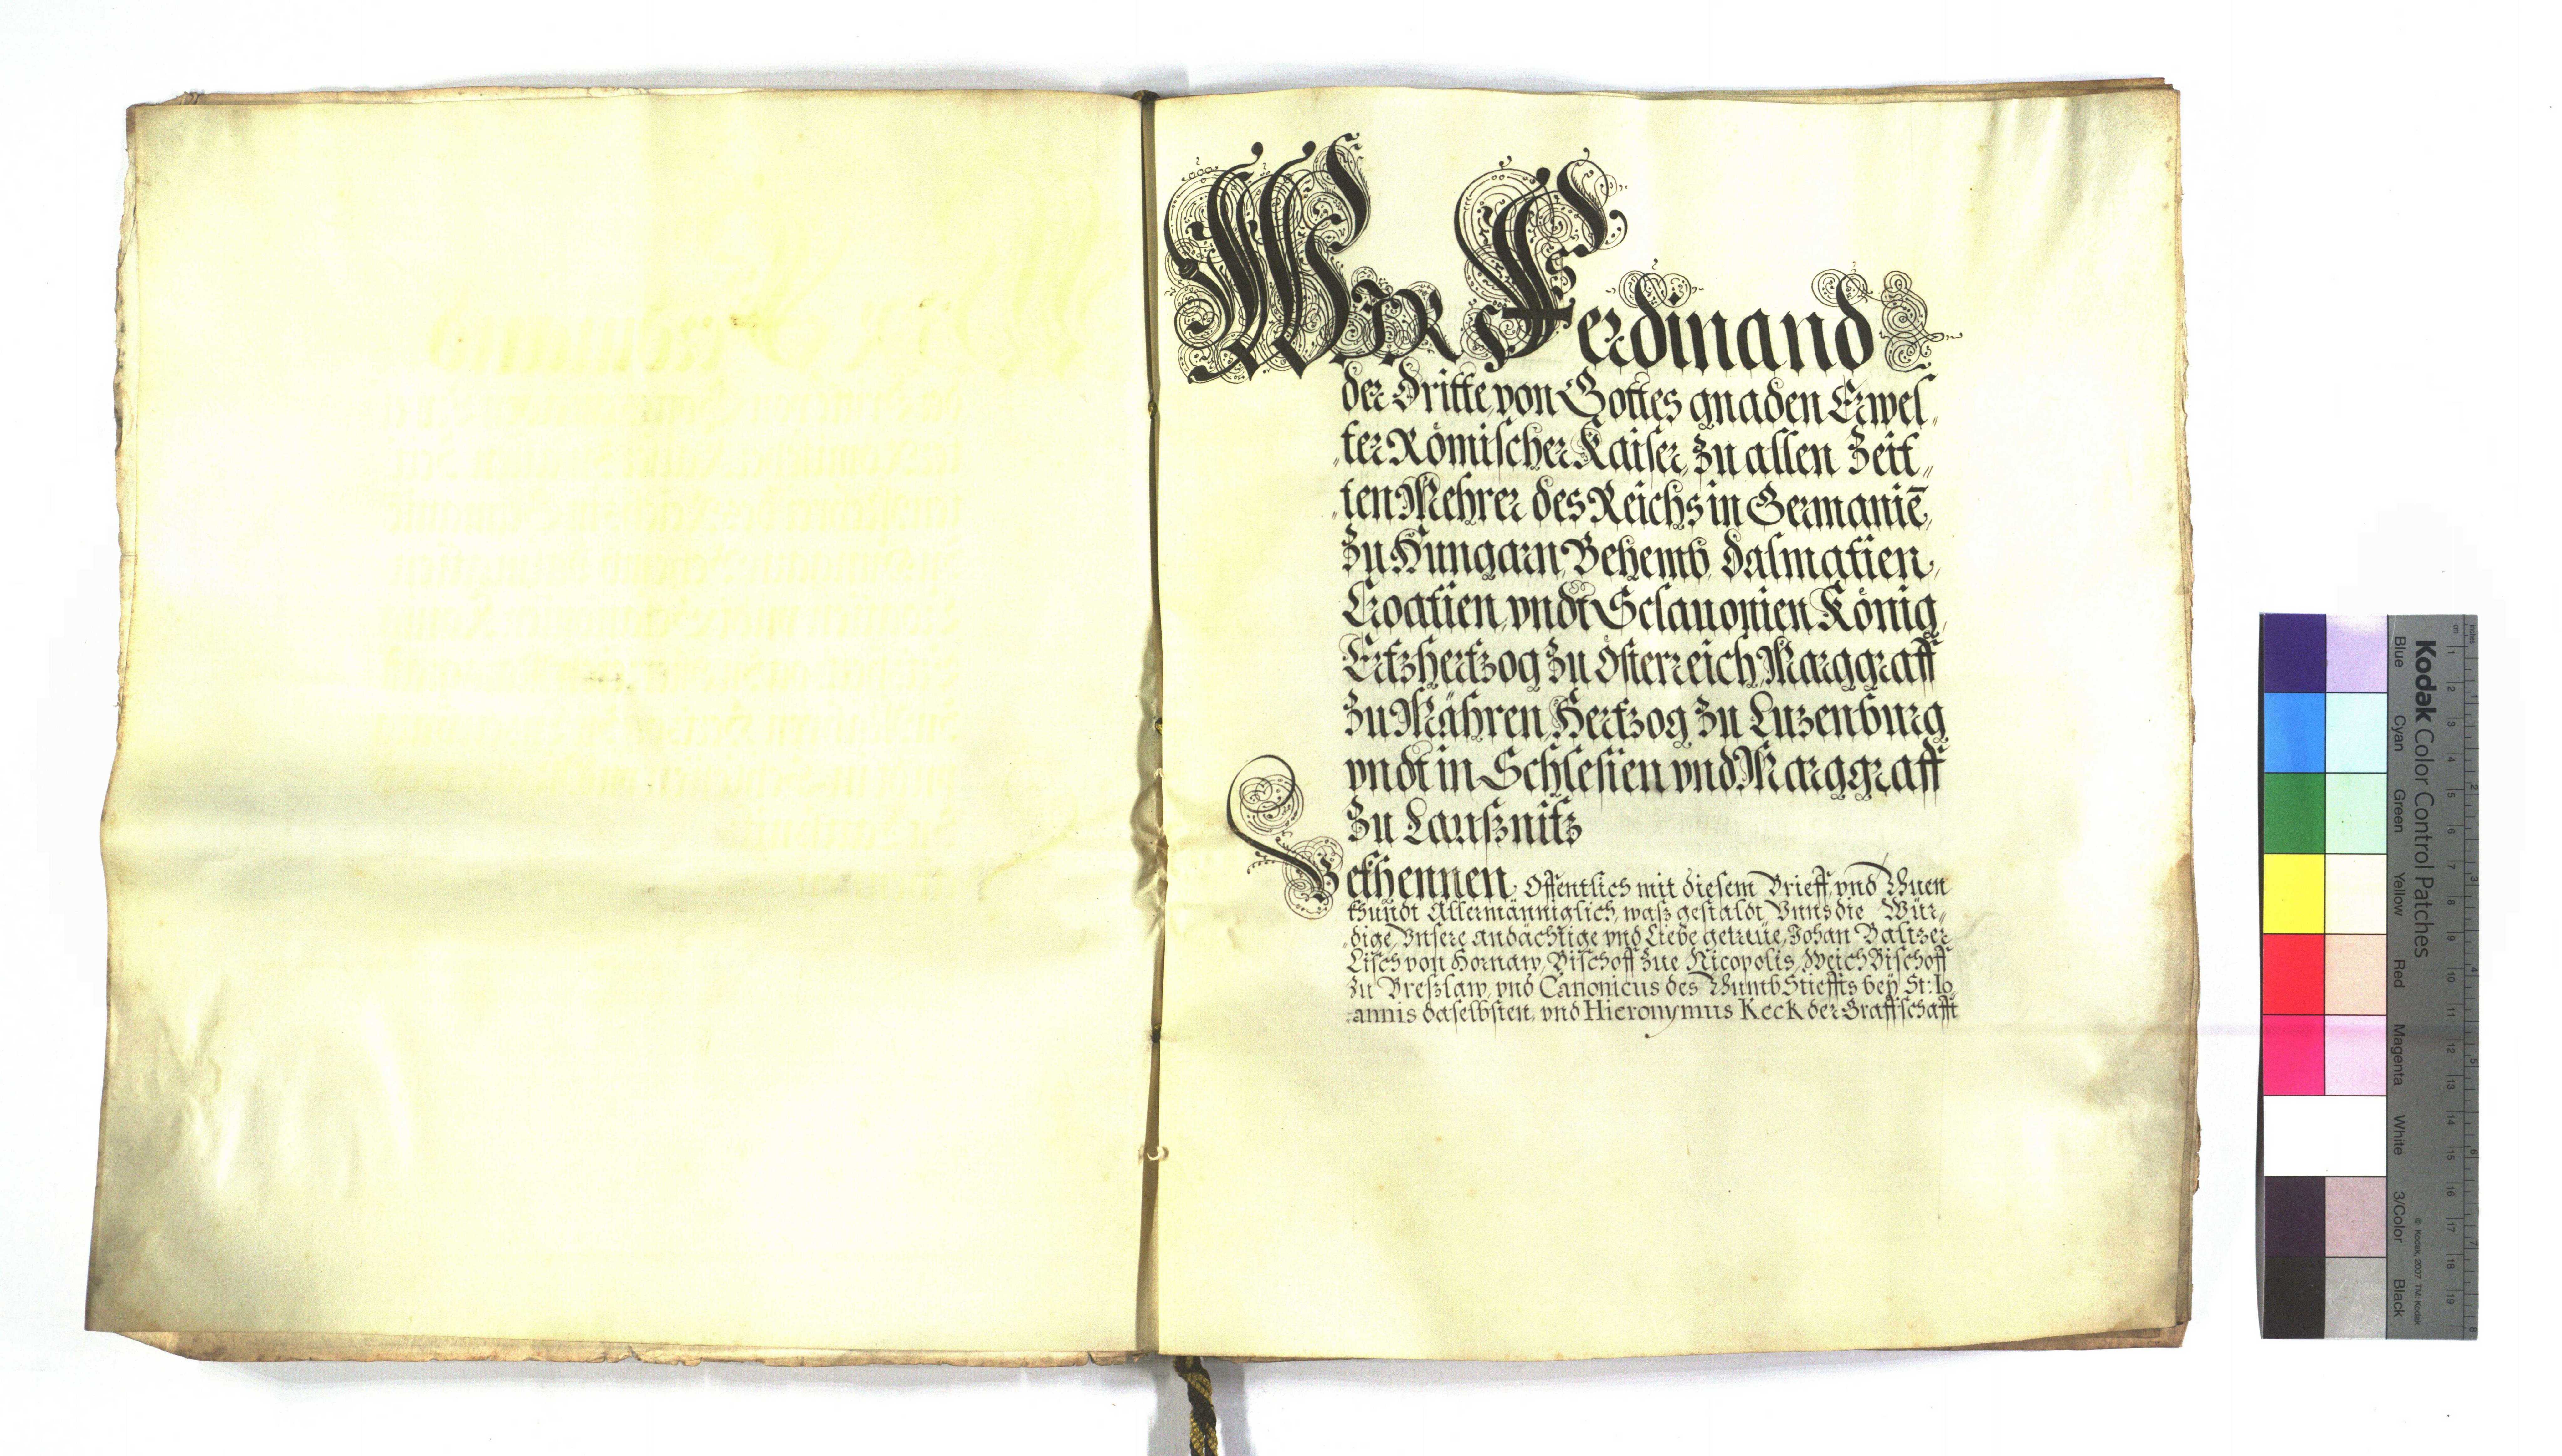 WIR Ferdinand
der dritte, von Gottes gnaden Erwel„
„ter Römischer Kaiser, zu allen Zeit„
„ten Mehrer des Reichs in Germaniē,
zu Hungarn, Behemb, Dalmatien,
Croatien, vndt Sclauonien König,
Ertzhertzog zu Össterreich, Marggraff
zu Mähren, Hertzog zu Luzenburg
vndt in Schlesien vnd Marggraff
zu Laußnitz
Bekhennen, Offentlich mit diesem Brieff, vnd Thuen
khundt Allermänniglich, waß gestaldt, Vnns die Wür„
„dige, Vnsere andächtige vnd Liebe getreüe, Johan Baltzer
Lisch von Hornaw, Bischoff zue Nicopolis, WeichBischoff
zu Breßlaw, vnd Canonicus des ThumbStieffts bey St: Io„
„annis daselbsten, vnd Hieronymus Keck der Graffschafft
Kodak Color Control Patches
Blue Cyan Green Yellow Red Magenta White 3/Color Black
© Kodak, 2007 TM: Kodak
inches 1 2 3 4 5 6 7 8
cm 1 2 3 4 5 6 7 8 9 10 11 12 13 14 15 16 17 18 19